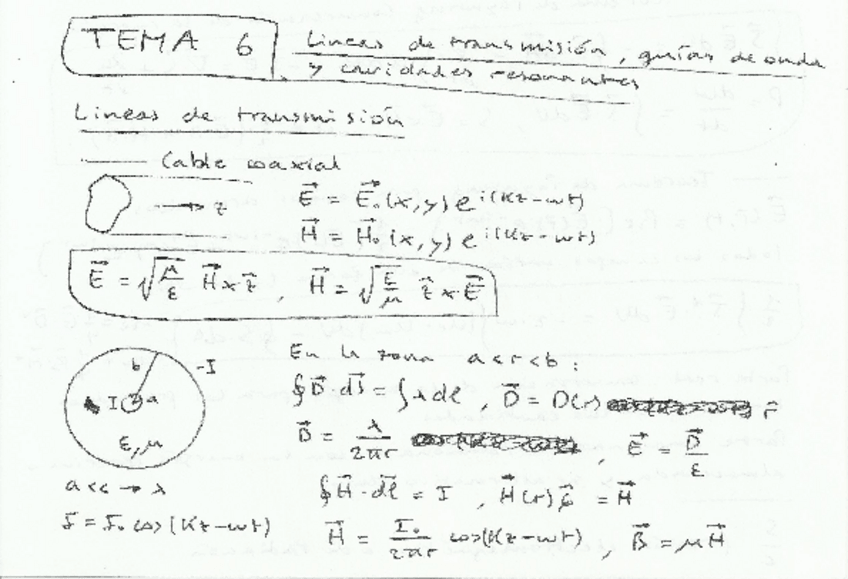 TEMA 6 Lineas de transmisión, guías de onda
y cavidades resonantes
Lineas de transmisión
Cable coaxial
→ z
E⃗ = E⃗₀(x,y) e^{i(Kz-wt)}
H⃗ = H⃗₀(x,y) e^{i(Kz-wt)}
E⃗ = √(μ/ε) H⃗ x ẑ , H⃗ = √(ε/μ) ẑ x E⃗
b -I
I a
ε, μ
En la zona a<r<b:
∮ D⃗·dS⃗ = ∫ λ dl , D⃗ = D(r) r̂
D⃗ = λ/2πr , E⃗ = D⃗/ε
a<< → λ
∮ H⃗·dl⃗ = I , H⃗(r) φ̂ = H⃗
I⃗ = I₀ cos(Kz-wt)
H⃗ = I₀/2πr cos(Kz-wt) , B⃗ = μH⃗